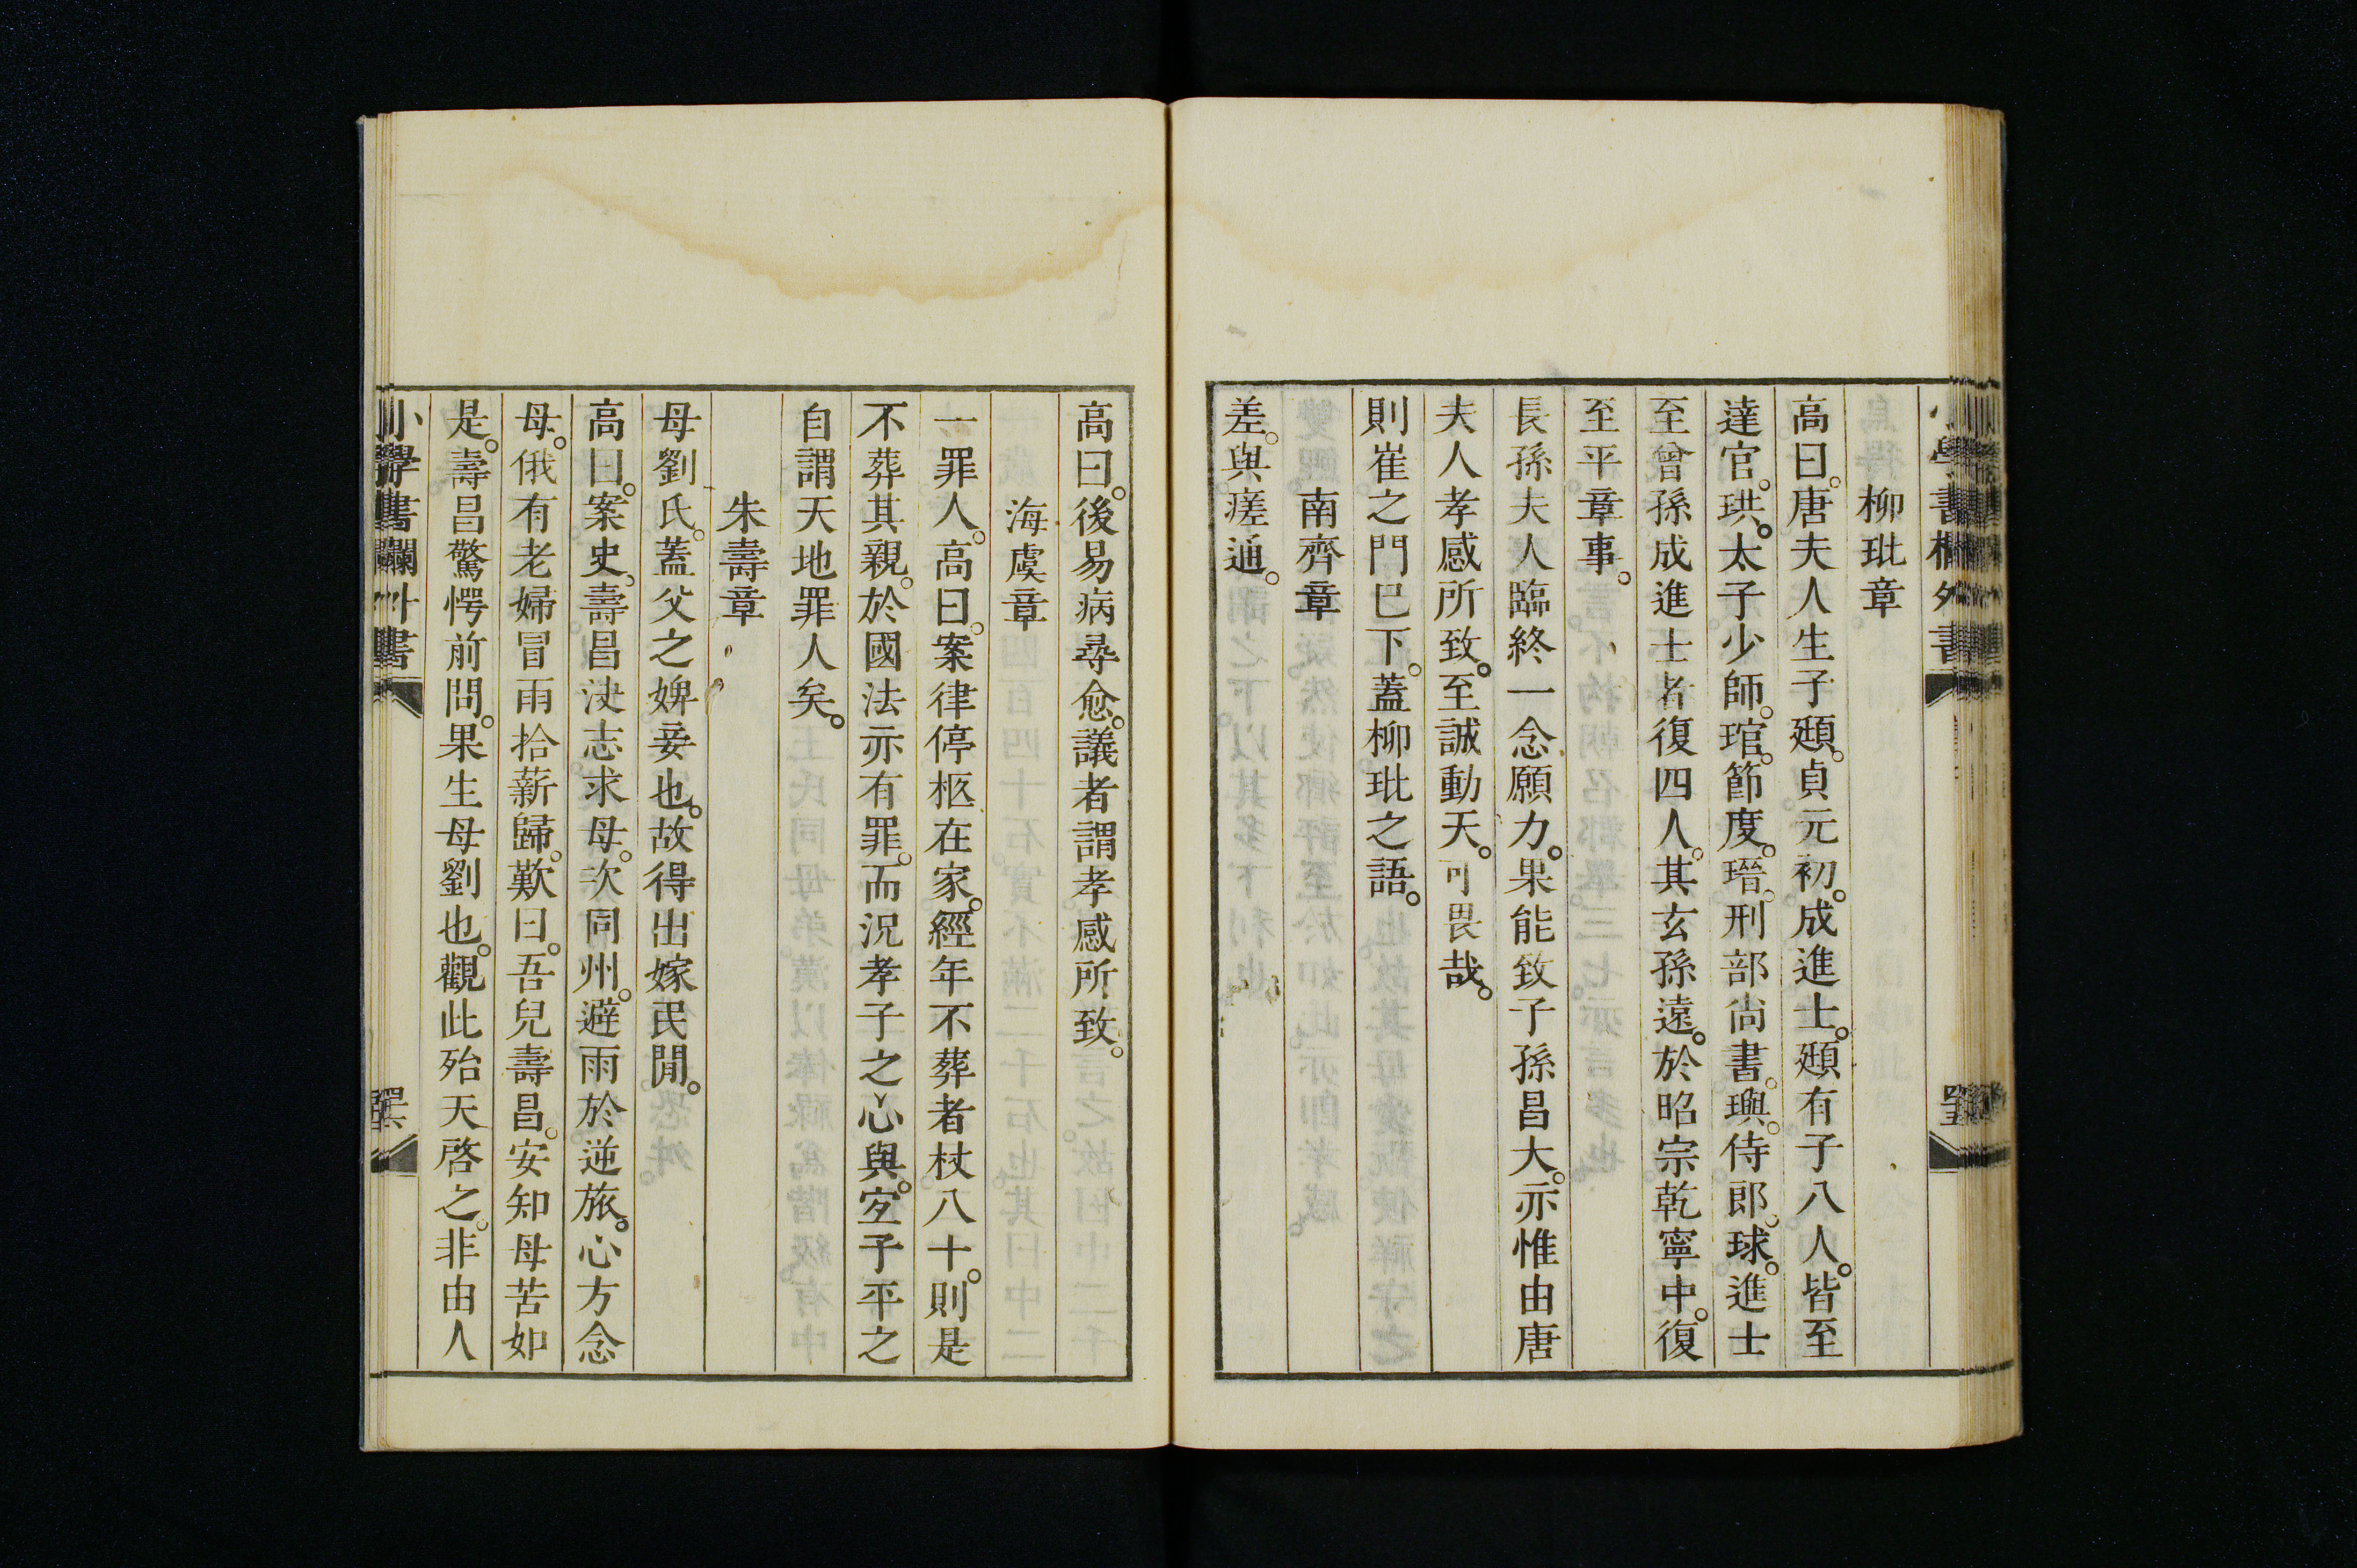 小學書欄外書
柳玭章
高曰。唐夫人生子頲。貞元初。成進士。頲有子八人。皆至
達官。珙。太子少師。琯。節度。瑨。刑部尚書。璵。侍郎。球。進士
至曾孫成進士者復四人。其玄孫遠。於昭宗乾寧中。復
至平章事。
長孫夫人臨終一念願力。果能致子孫昌大。亦惟由唐
夫人孝感所致。至誠動天。可畏哉。
則崔之門巴下。蓋柳玭之語。
南齊章
差。與瘥通。
高曰。後易病尋愈。議者謂孝感所致。
海虞章
一罪人。高曰。案律停柩在家。經年不葬者杖八十。則是
不葬其親。於國法亦有罪。而況孝子之心與。㝎子平之
自謂天地罪人矣。
朱壽章
母劉氏。蓋父之婢妾也。故得出嫁民閒。
高曰。案史。壽昌决志求母。次同州。避雨於逆旅。心方念
母。俄有老婦冒雨拾薪歸。歎曰。吾兒壽昌。安知母苦如
是。壽昌驚愕前問。果生母劉也。觀此殆天啓之。非由人
小學書欄外書